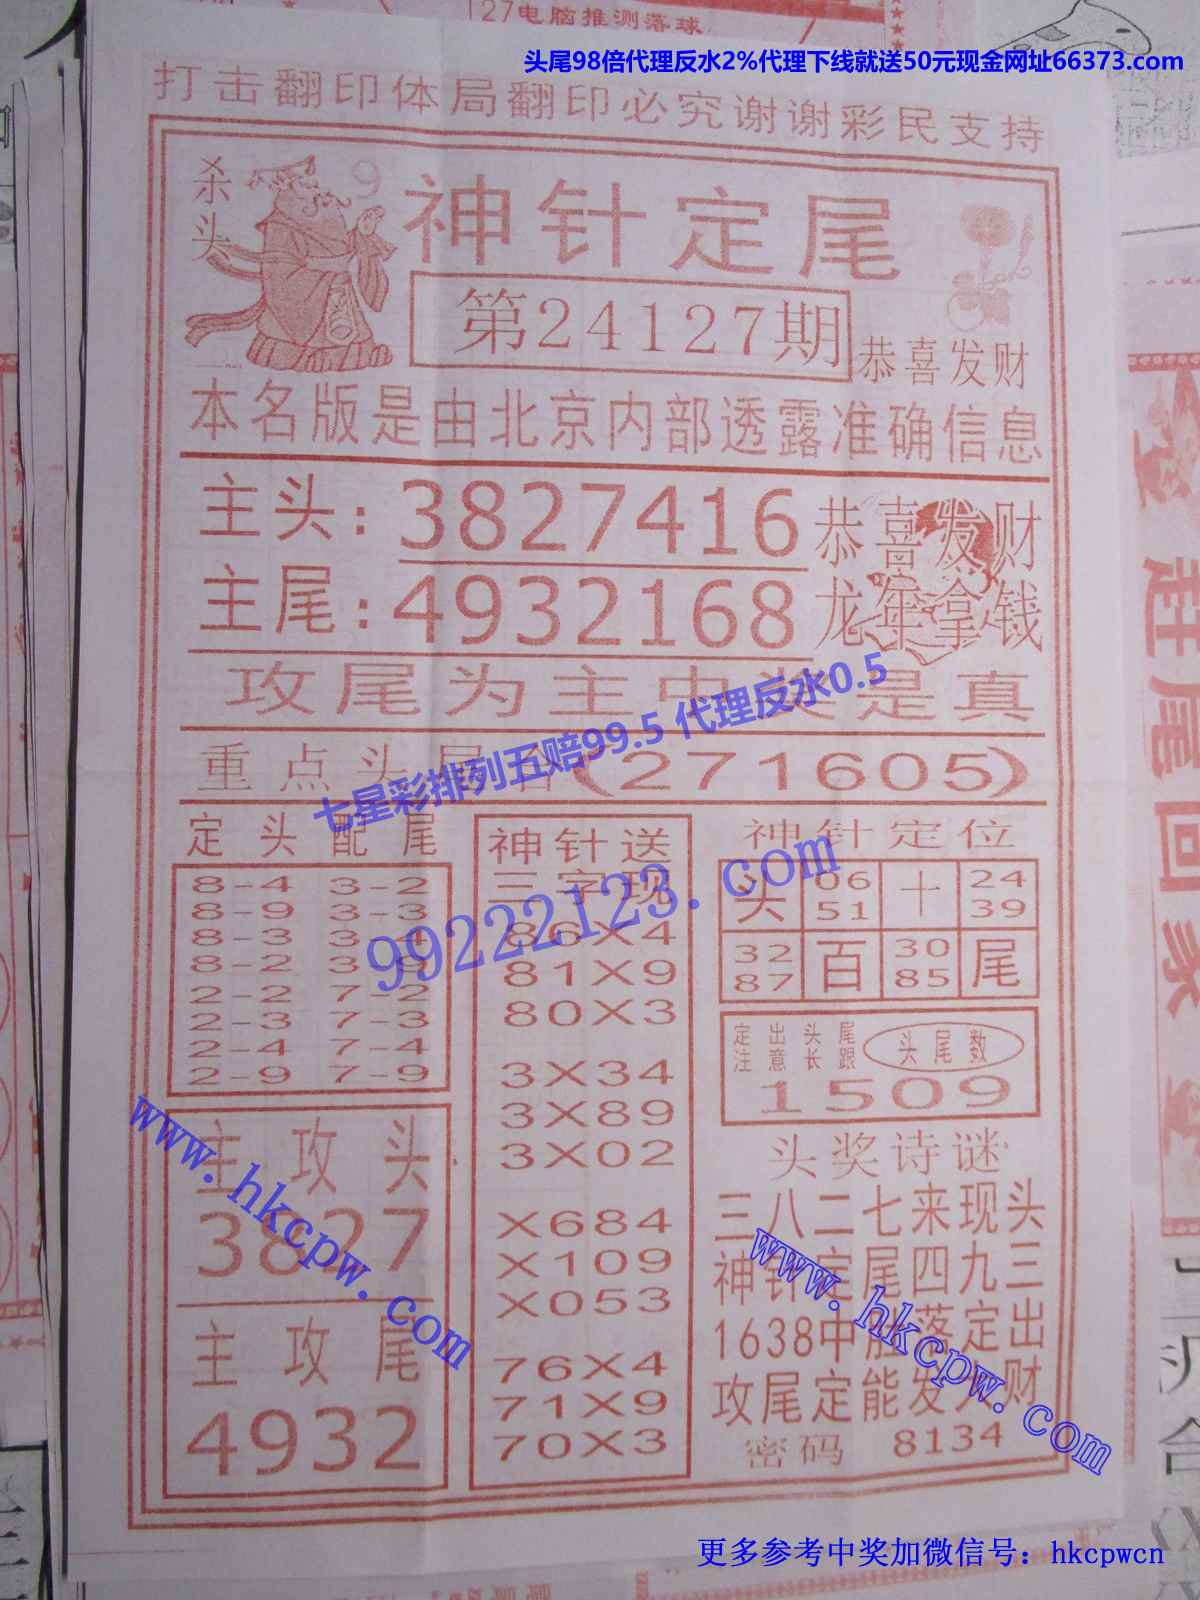 127电脑推测落球
头尾98倍代理反水2%代理下线就送50元现金网址66373.com
打击翻印体局翻印必究谢谢彩民支持
杀头
9
神针定尾
第24127期
恭喜发财
本名版是由北京内部透露准确信息
主头:3827416
恭喜发财
主尾:4932168
龙年拿钱
攻尾为主中奖是真
七星彩排列五赔99.5 代理反水0.5
重点头尾合(271605)
定头配尾
8-4 3-2
8-9 3-3
8-3 3-4
8-2 3-9
2-2 7-2
2-3 7-3
2-4 7-4
2-9 7-9
主攻头
3827
主攻尾
4932
神针送
三字现
86X4
81X9
80X3
3X34
3X89
3X02
X684
X109
X053
76X4
71X9
70X3
99222123.com
神针定位
头 06 十 24
51 39
32 百 30 尾
87 85
定出头尾
注意长跟
头尾数
1509
头奖诗谜
三八二七来现头
神针定尾四九三
1638中肚落定出
攻尾定能发大财
密码 8134
www.hkcpw.com
www.hkcpw.com
赶尾回家
更多参考中奖加微信号：hkcpwcn